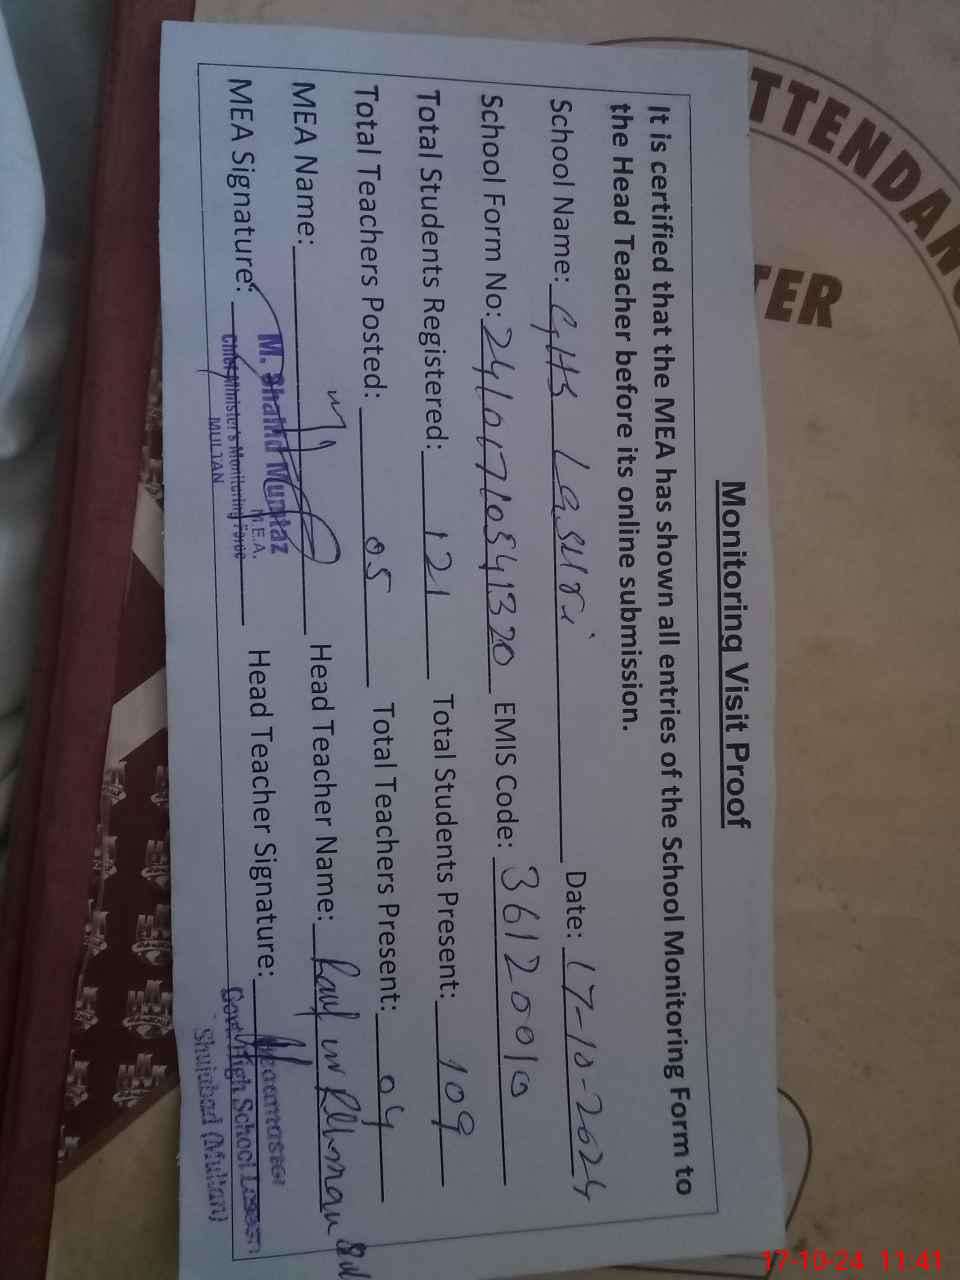 TTENDAN
TER
Monitoring Visit Proof
It is certified that the MEA has shown all entries of the School Monitoring Form to
the Head Teacher before its online submission.
School Name: GHS Lashri Date: 17-10-2024
School Form No: EMIS Code: 36120010
Total Students Registered: 121 Total Students Present: 109
Total Teachers Posted: 05 Total Teachers Present: 04
MEA Name: Head Teacher Name: ur Rehman
M. Shahid Mumtaz
M.E.A.
MEA Signature: Head Teacher Signature:
Chief Minister's Monitoring Force
MULTAN
Headmaster
Govt. High School
Shujabad (Multan)
17-10-24 11:41